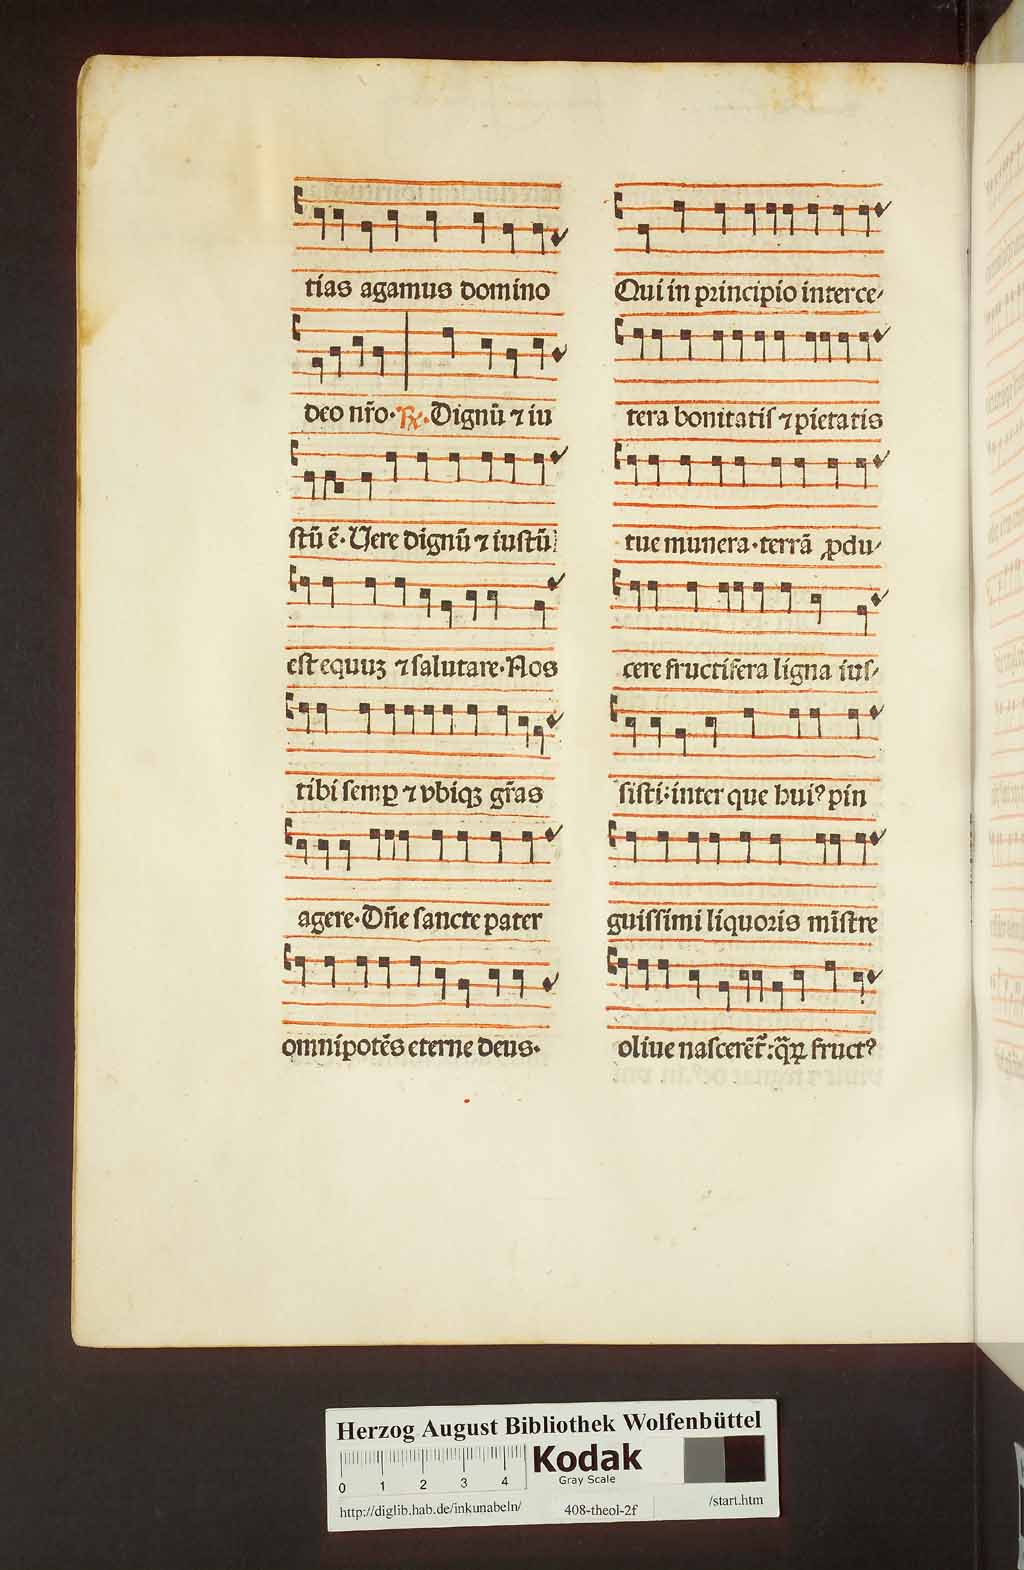 tias agamus domino
deo nr̄o· ℟.Dignū ⁊ iu
stū ē· Vere dignū ⁊ iustū
est equuꝫ ⁊ salutare· Nos
tibi semꝑ ⁊ vbiqꝫ gr̄as
agere· Dn̄e sancte pater
omnipotēs eterne deus·
Qui in principio interce⸗
tera bonitatis ⁊ pietatis
tue munera· terrā ꝓdu⸗
cere fructifera ligna ius⸗
sisti: inter que huiꝰ pin
guissimi liquoris mīstre
oliue nascerēt᷑: qͣꝝ fructꝰ
Herzog August Bibliothek Wolfenbüttel
0 1 2 3 4
Kodak
Gray Scale
http://diglib.hab.de/inkunabeln/ 408-theol-2f /start.htm